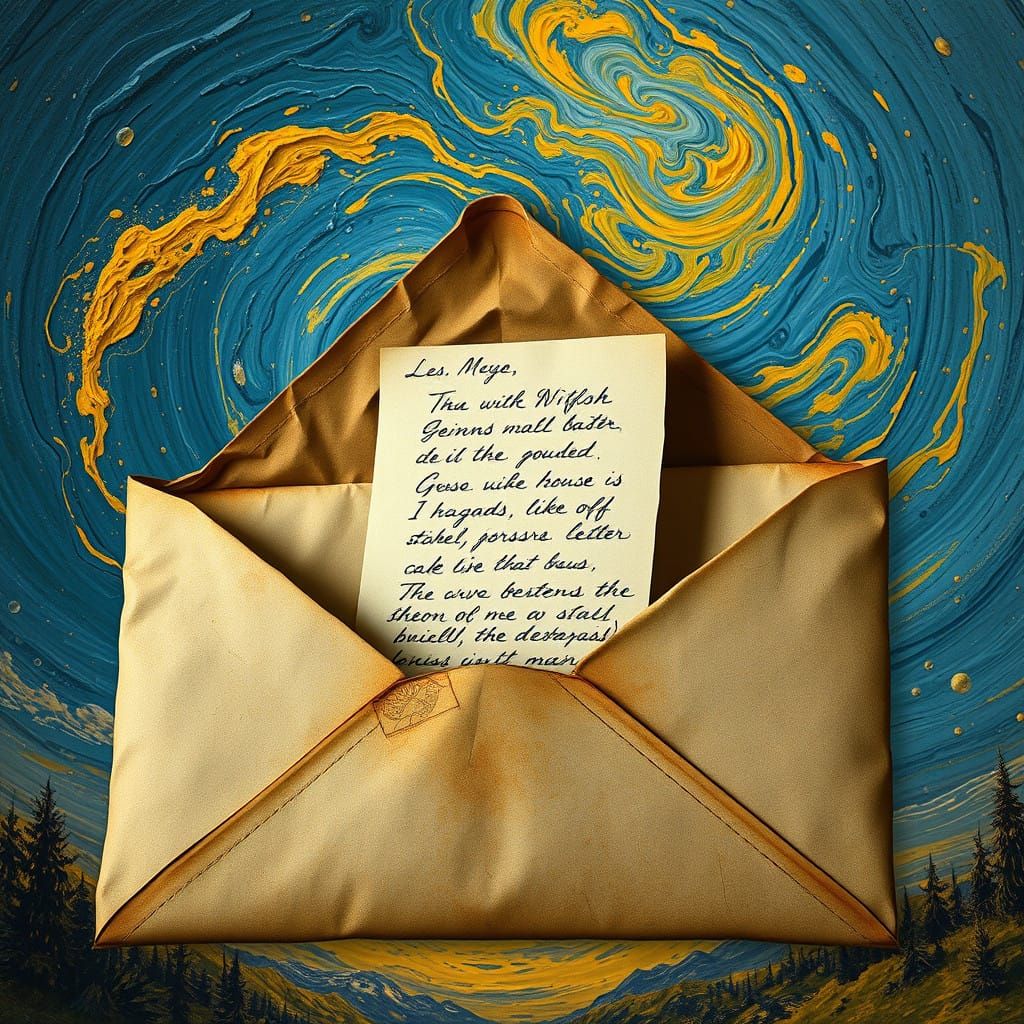 Les. Meyc,
Thu witk Nitfsh
Geinns mall baster
de il the gouded.
Gerse uike house is
I hagads, like off
stakel, porssrs letter
cake lise that bsus,
The arva bestens the
theon of me a stall
buiell, the
man